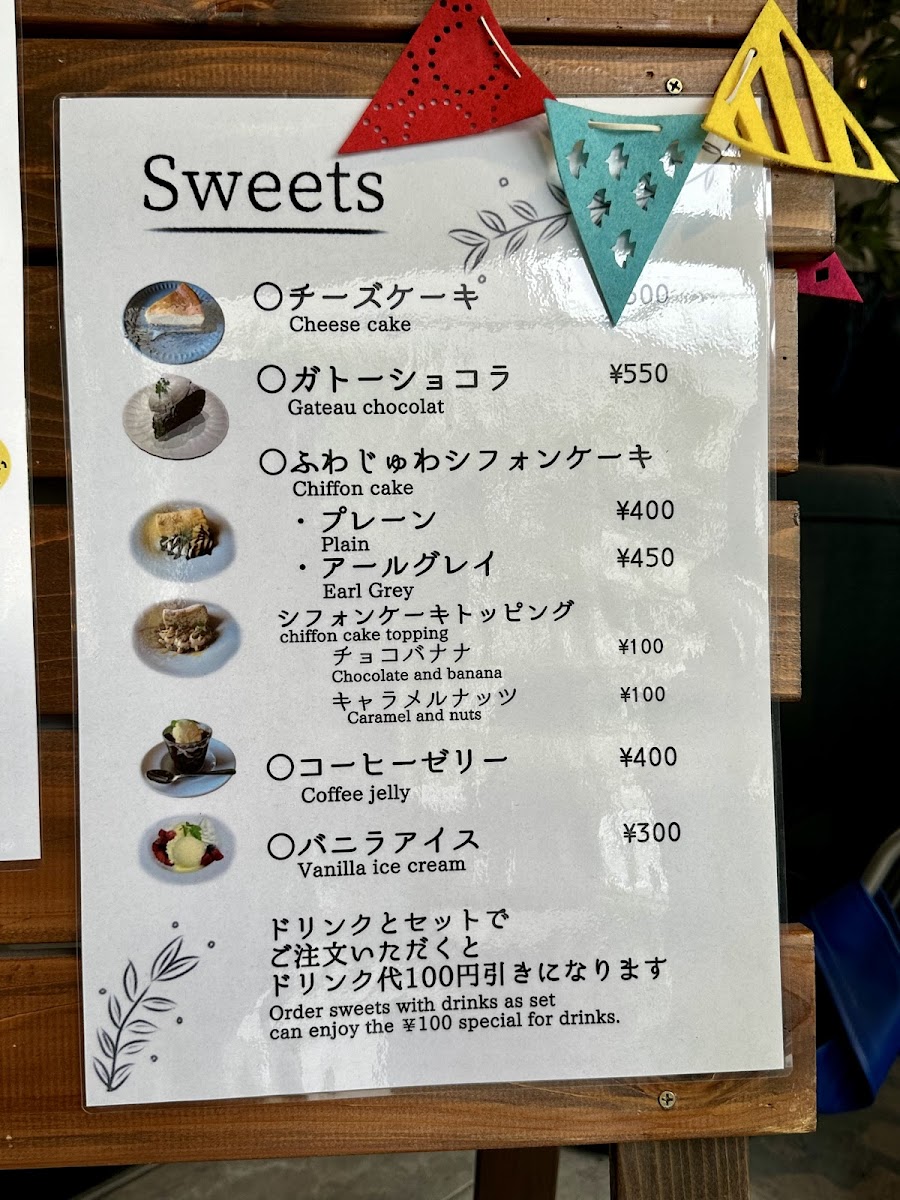 Sweets
○チーズケーキ
Cheese cake
○ガトーショコラ ¥550
Gateau chocolat
○ふわじゅわシフォンケーキ
Chiffon cake
・プレーン ¥400
Plain
・アールグレイ ¥450
Earl Grey
シフォンケーキトッピング
chiffon cake topping
チョコバナナ ¥100
Chocolate and banana
キャラメルナッツ ¥100
Caramel and nuts
○コーヒーゼリー ¥400
Coffee jelly
○バニラアイス ¥300
Vanilla ice cream
ドリンクとセットで
ご注文いただくと
ドリンク代100円引きになります
Order sweets with drinks as set
can enjoy the ¥100 special for drinks.